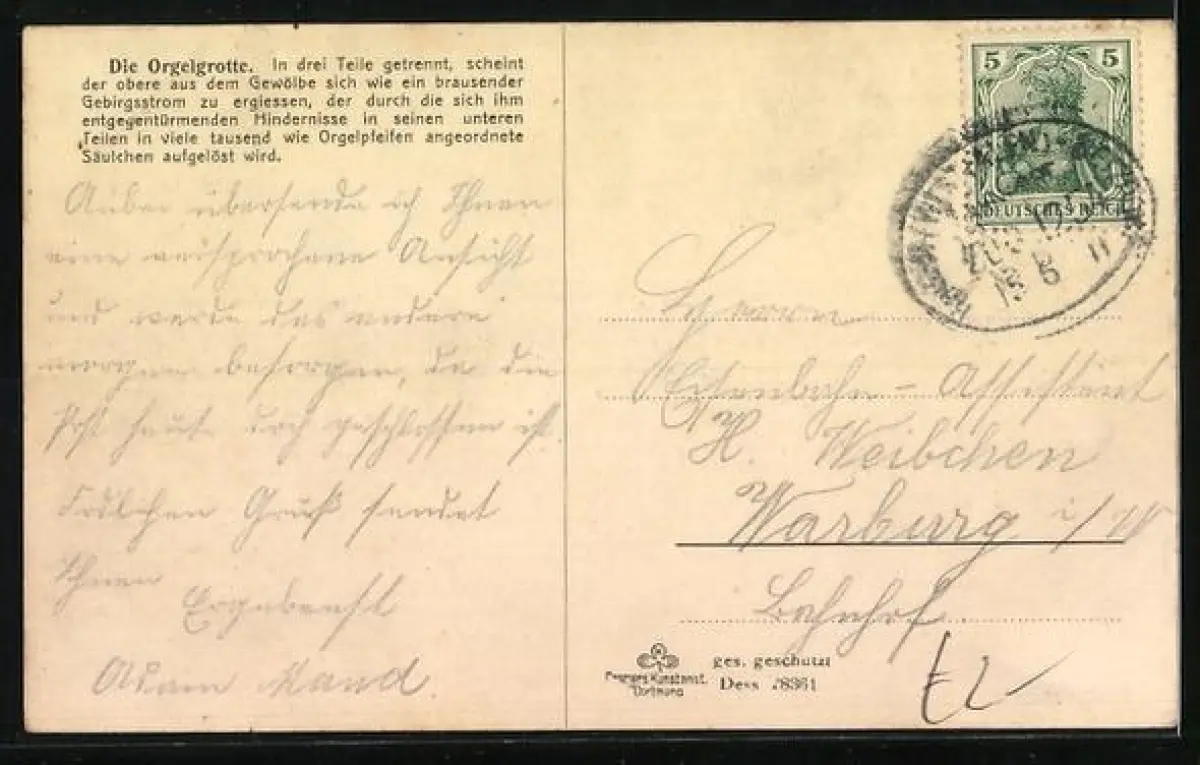 Die Orgelgrotte. In drei Teile getrennt, scheint
der obere aus dem Gewölbe sich wie ein brausender
Gebirgsstrom zu ergiessen, der durch die sich ihm
entgegentürmenden Hindernisse in seinen unteren
Teilen in viele tausend wie Orgelpfeifen angeordnete
Säulchen aufgelöst wird.
übersende ich Ihnen
eine versprochene Ansicht
und werde das andere
morgen besorgen, da die
Post heute geschlossen ist.
Gruß sendet
Ihnen
Ergebenst
Adam
5 5
DEUTSCHES REICH
15 6 11
Herrn
Eisenbahn-Assistent
H. Weibchen
Warburg i/W
Bahnhof
ges. geschützt
Kunstanst.
Dortmund
Dess
8361